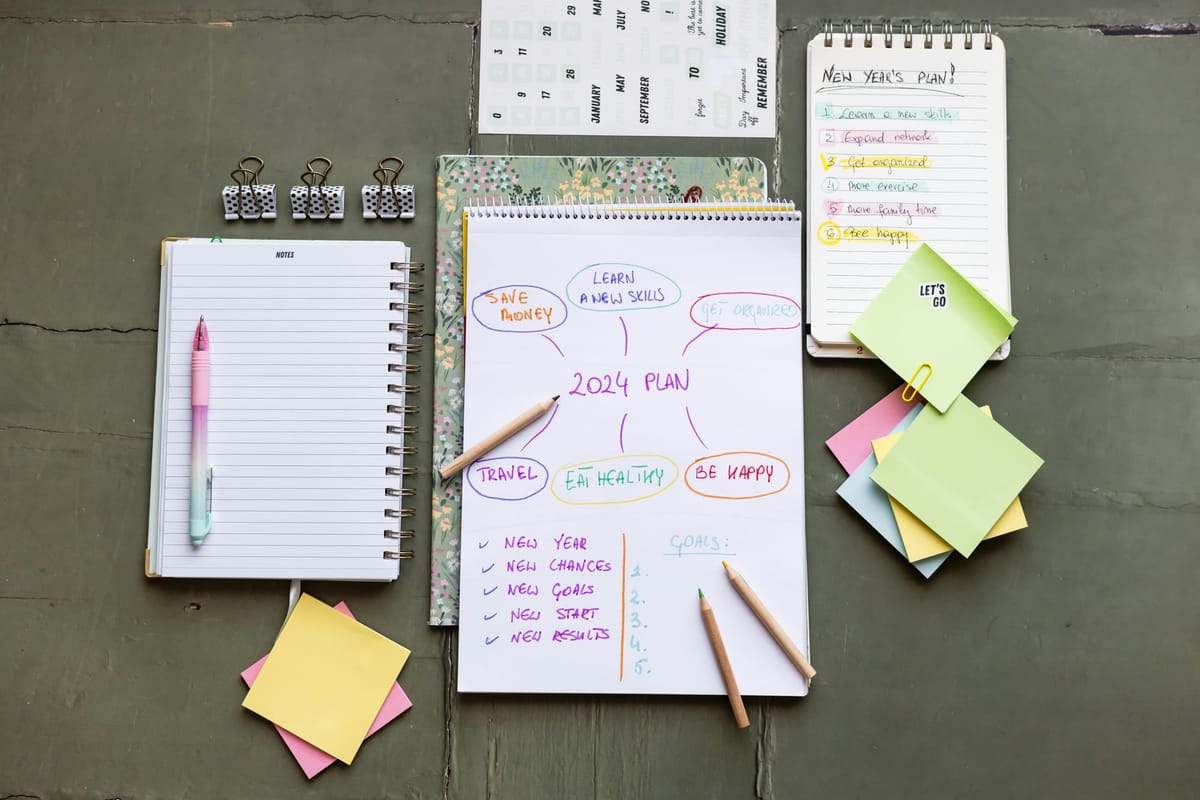 0
3
9
11
17
20
26
29
JANUARY
MAY
JULY
SEPTEMBER
!
TO
HOLIDAY
forget
Important
Day
off
REMEMBER
NOTES
SAVE
MONEY
LEARN
A NEW SKILLS
GET ORGANIZED
2024 PLAN
TRAVEL
EAT HEALTHY
BE HAPPY
✓ NEW YEAR
✓ NEW CHANCES
✓ NEW GOALS
✓ NEW START
✓ NEW RESULTS
GOALS:
1.
2.
3.
4.
5.
NEW YEAR'S PLAN!
1 Learn a new skills
2 Expand network
3 Get organized
4 More exercise
5 More family time
6 Bee happy
LET'S
GO
2